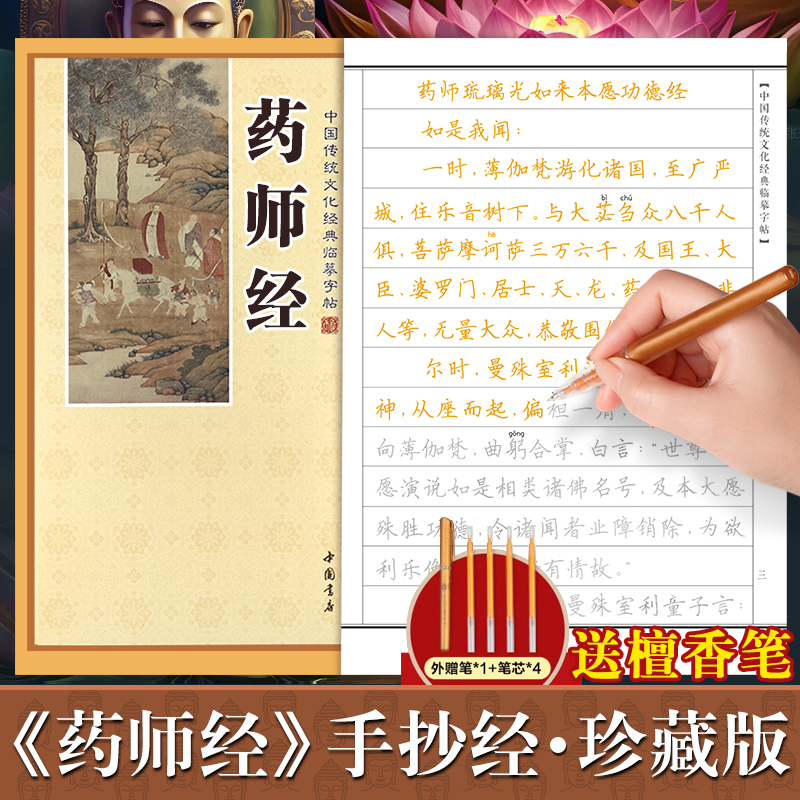 药师经
中国传统文化经典临摹字帖
中国书店
【中国传统文化经典临摹字帖】
药师琉璃光如来本愿功德经
如是我闻：
一时，薄伽梵游化诸国，至广严
bì chú
城，住乐音树下。与大苾刍众八千人
hē
俱，菩萨摩诃萨三万六千，及国王、大
臣、婆罗门、居士、天、龙、药
人等，无量大众，恭敬围
尔时，曼殊室利
神，从座而起，偏袒一肩
gōng
向薄伽梵，曲躬合掌，白言：“世尊
愿演说如是相类诸佛名号，及本大愿
殊胜功德，令诸闻者业障销除，为欲
利乐像 有情故。”
曼殊室利童子言：
三
外赠笔*1+笔芯*4
送檀香笔
《药师经》手抄经·珍藏版